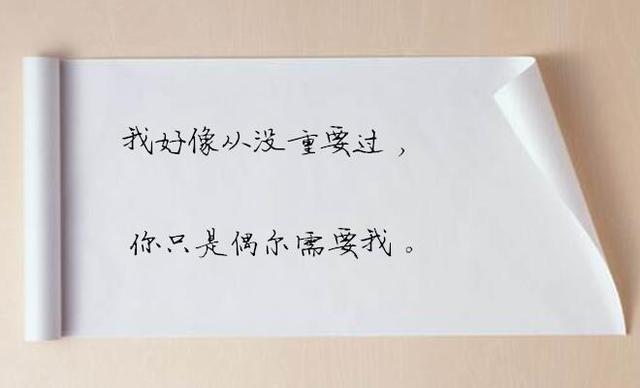 我好像从没重要过，
你只是偶尔需要我。